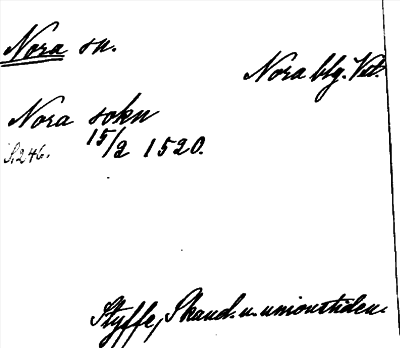 Nora sn.
Nora blg. Vstl.
Nora sokn
S. 246. 15/2 1520.
Styffe, Skand. u. unionstiden.